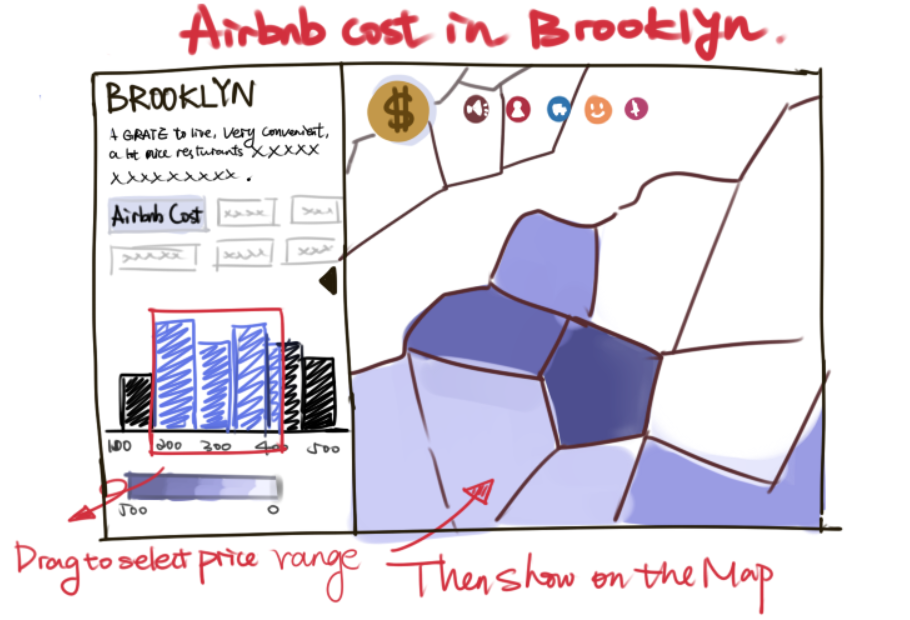 Airbnb cost in Brooklyn.
BROOKLYN
A GRATE to live, very convenient,
a lot nice resturants XXXXX
XXXXXXXXX .
Airbnb Cost xxxx xxx
xxxxx xxxx xxx
$
100 200 300 400 500
500 0
Drag to select price range
Then show on the Map